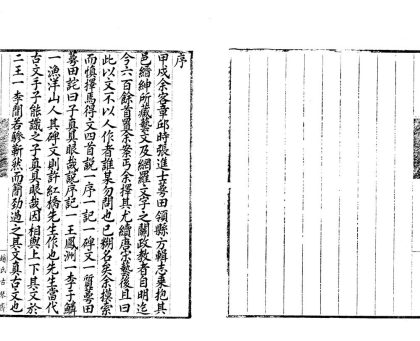 序
甲戌余客章邱時張進士萼田領縣方輯志乘抱其
邑縉紳所藏藝文及網羅文字之關政教者自明迄
今六百餘首置余案丐余擇其尤續唐宋藝後且曰
此以文不以人作者誰某勿問也已糊名矣余摸索
而慎擇焉得文四首說一序一記一碑文一質萼田
萼田詫曰子真具眼哉說序記一王鳳洲一李于鱗
一漁洋山人其碑文則許紅橋先生作也先生當代
古文手子能識之子真具眼哉因相與上下其文於
二王一李間若驂靳然而簡勁過之其文真古文也